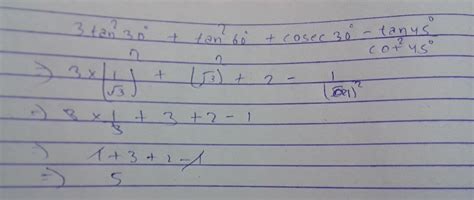 3 tan² 30° + tan² 60° + cosec 30° - tan 45° / cot² 45°
⇒ 3 × (1/√3)² + (√3)² + 2 - 1/(1)²
⇒ 3 × 1/3 + 3 + 2 - 1
⇒ 1 + 3 + 2 - 1
⇒ 5